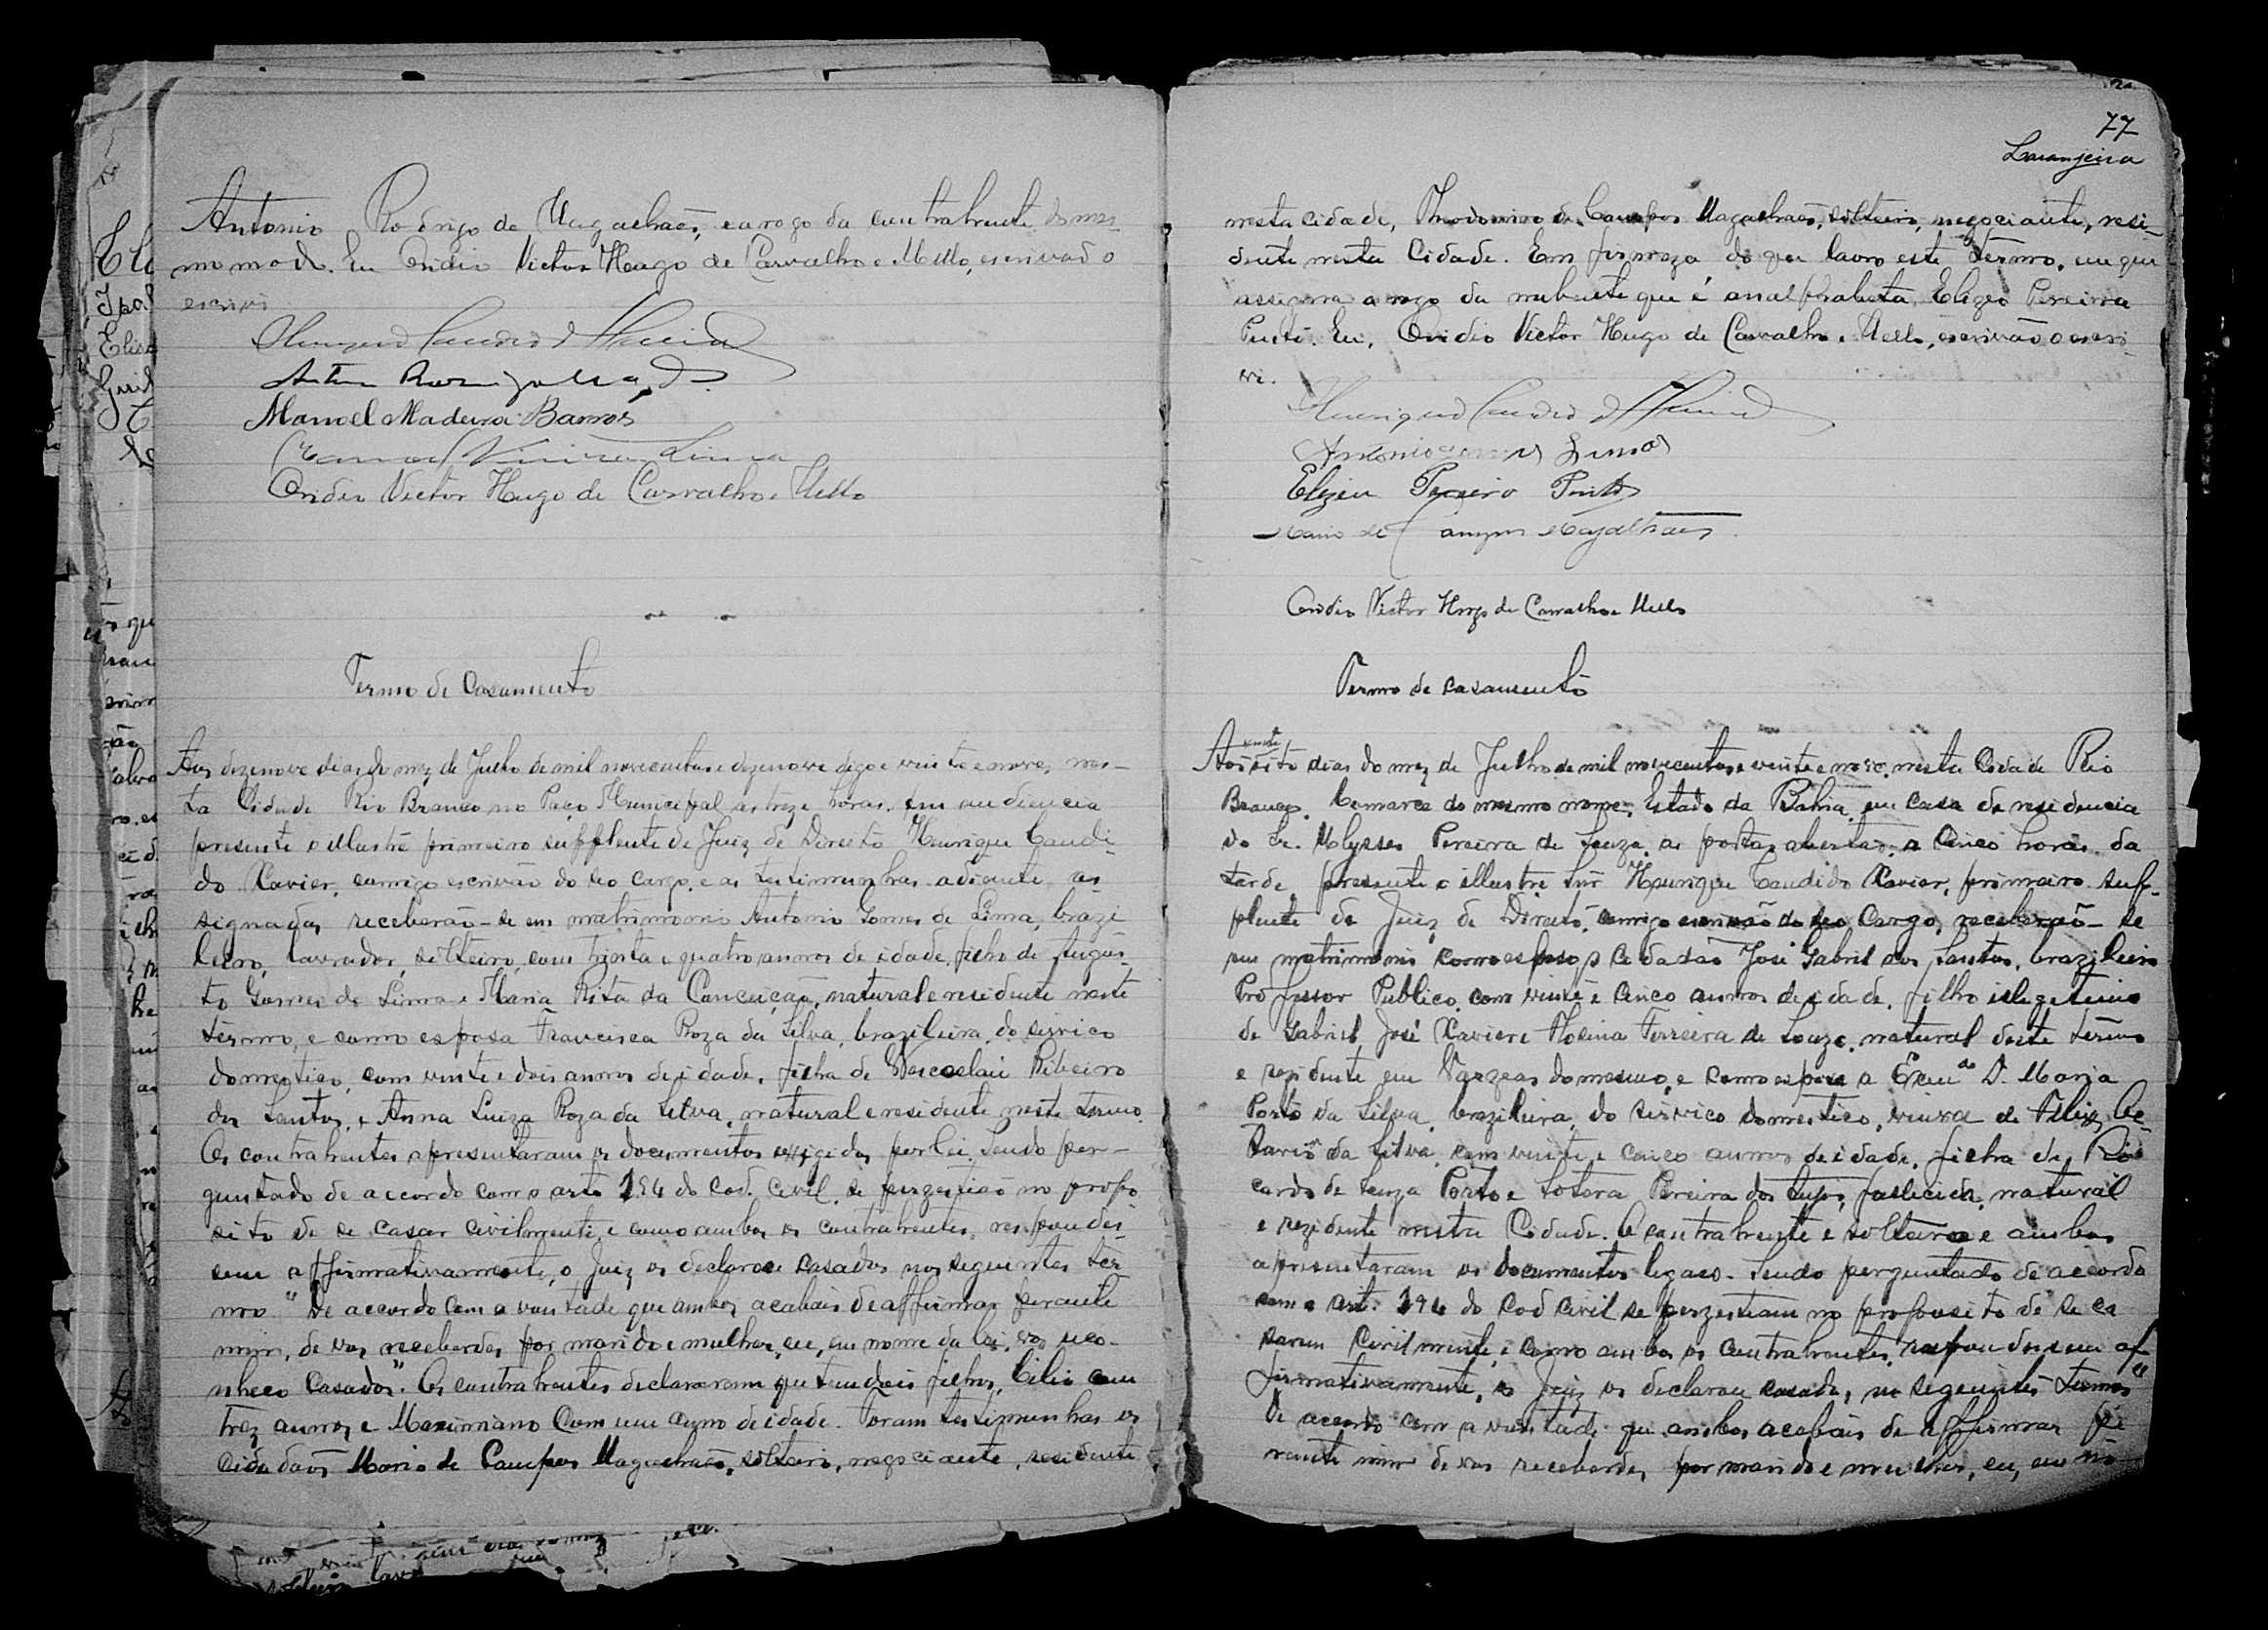 Antonio Rodrigo de Magaehaes, e a rogo da contrahente do mes-
mo modo. Eu Ovidio Victor Hugo de Carvalho e Mello, escrivaõ o
escrevi
Manoel Madeira Barros
Manoel Vieira Lima
Ovidio Victor Hugo de Carvalho e Mello
Termo de Casamento
Aos dezenove dias do mez de Julho de mil novecentos e dezenove digo e vinte e nove, nes-
ta Cidade Rio Branco no Paço Municipal as treze horas. em audiencia
presente o illustre primeiro supplente de Juiz de Direito Henrique Candi-
do Xavier, comigo escrivão do seo cargo, e as testimunhas adiente as-
signadas, receberão-se em matrimonio Antonio Gomes de Lima, brazi
leiro, lavrador, solteiro, com trinta e quatro annos de idade, filho de Augus-
to Gomes de Lima e Maria Rita da Conceição, natural e residente neste
termo, e como esposa Francisca Roza da Silva, brazileira, do serviço
domestico, com vinte e dois annos de idade, filha de Ribeiro
dos Santos, e Anna Luiza Roza da Silva, natural e residente neste termo.
Os contrahentes apresentaram os documentos exigidos por lei. Sendo per-
guntado de accordo com o arto 194 do Cod. Civil se perzestião no propo
sito de se casar civilmente, e como ambos os contrahentes, respondes
sem affirmativamente, o Juiz os declarou casados nos seguintes ter
mo "De accordo com a vontade que ambos acabais de affirmar perante
mim, de vos receberdes por marido e mulher, eu, em nome da lei, vos reco-
nheço Casados". Os contrahentes declararam que tem dois filhos, Cilio com
trez annos e Maximiano Com um anno de idade. Foram testimunhas os
cidadaõs Mario de Campos Magaehaes, solteiro, negociante, residente
77
Laranjeira
nesta cidade, Theodomiro de Campos Magaehaes, solteiro, negociante, resi-
dente nesta Cidade. Em firmeza do que lavro este termo, em que
assigna a rogo da nubente que é analphabeta, Elizeo Pereira
Pinto. Eu, Ovidio Victor Hugo de Carvalho e Mello, escrivão o escre-
vi.
Antonio Gomes Lima
Elizeu Pereira Pinto
Mario de Campos Magalhaes
Ovidio Victor Hugo de Carvalho e Mello
Termo de casamento
Aos vinte oito dias do mez de Julho de mil novecentos e vinte e nove, nesta Cidade Rio
Branco, Comarca do mesmo nome, Estado da Bahia, em casa de residencia
do Sr. Ulysses Pereira de Souza, as portas abertas, a Cinco horas da
tarde, presente o illustre Snr Henrique Candido Xavier, primeiro sup-
plente de Juiz de Direito, comigo escrivão do seo Cargo, receberaõ-se
em matrimonio como esposo o Cidadão José Gabril dos Santos, brazileiro
Professor Publico, com vinte e cinco annos de idade, filho illegetimo
de Gabriel José Xavier e Ferreira de Souza, natural deste termo
e rezidente em Varzeas do mesmo, e como espoza a Exma D. Maria
Porto da Silva, brazileira, do serviço domestico, viuva de Felix Ce-
zario da Silva, com vinte e cinco annos de idade, filha de Ri
cardo de Souza Porto e Pereira dos fallecida, natural
e rezidente nesta Cidade. O contrahente e solteiro e ambos
apresentaram os documentos legaes. Sendo perguntado de accordo
com o art. 194 do Cod Civil se perzestiam no preposito de se ca
sarem Civilmente, e como ambos os contrahentes, respondessem af
firmativamente, o Juiz os declarou casados, nos seguintes termos "
De accordo com a vontade que ambos acabais de affirmar pe
rante mim de vos receberdes por marido e mulher, eu, em no